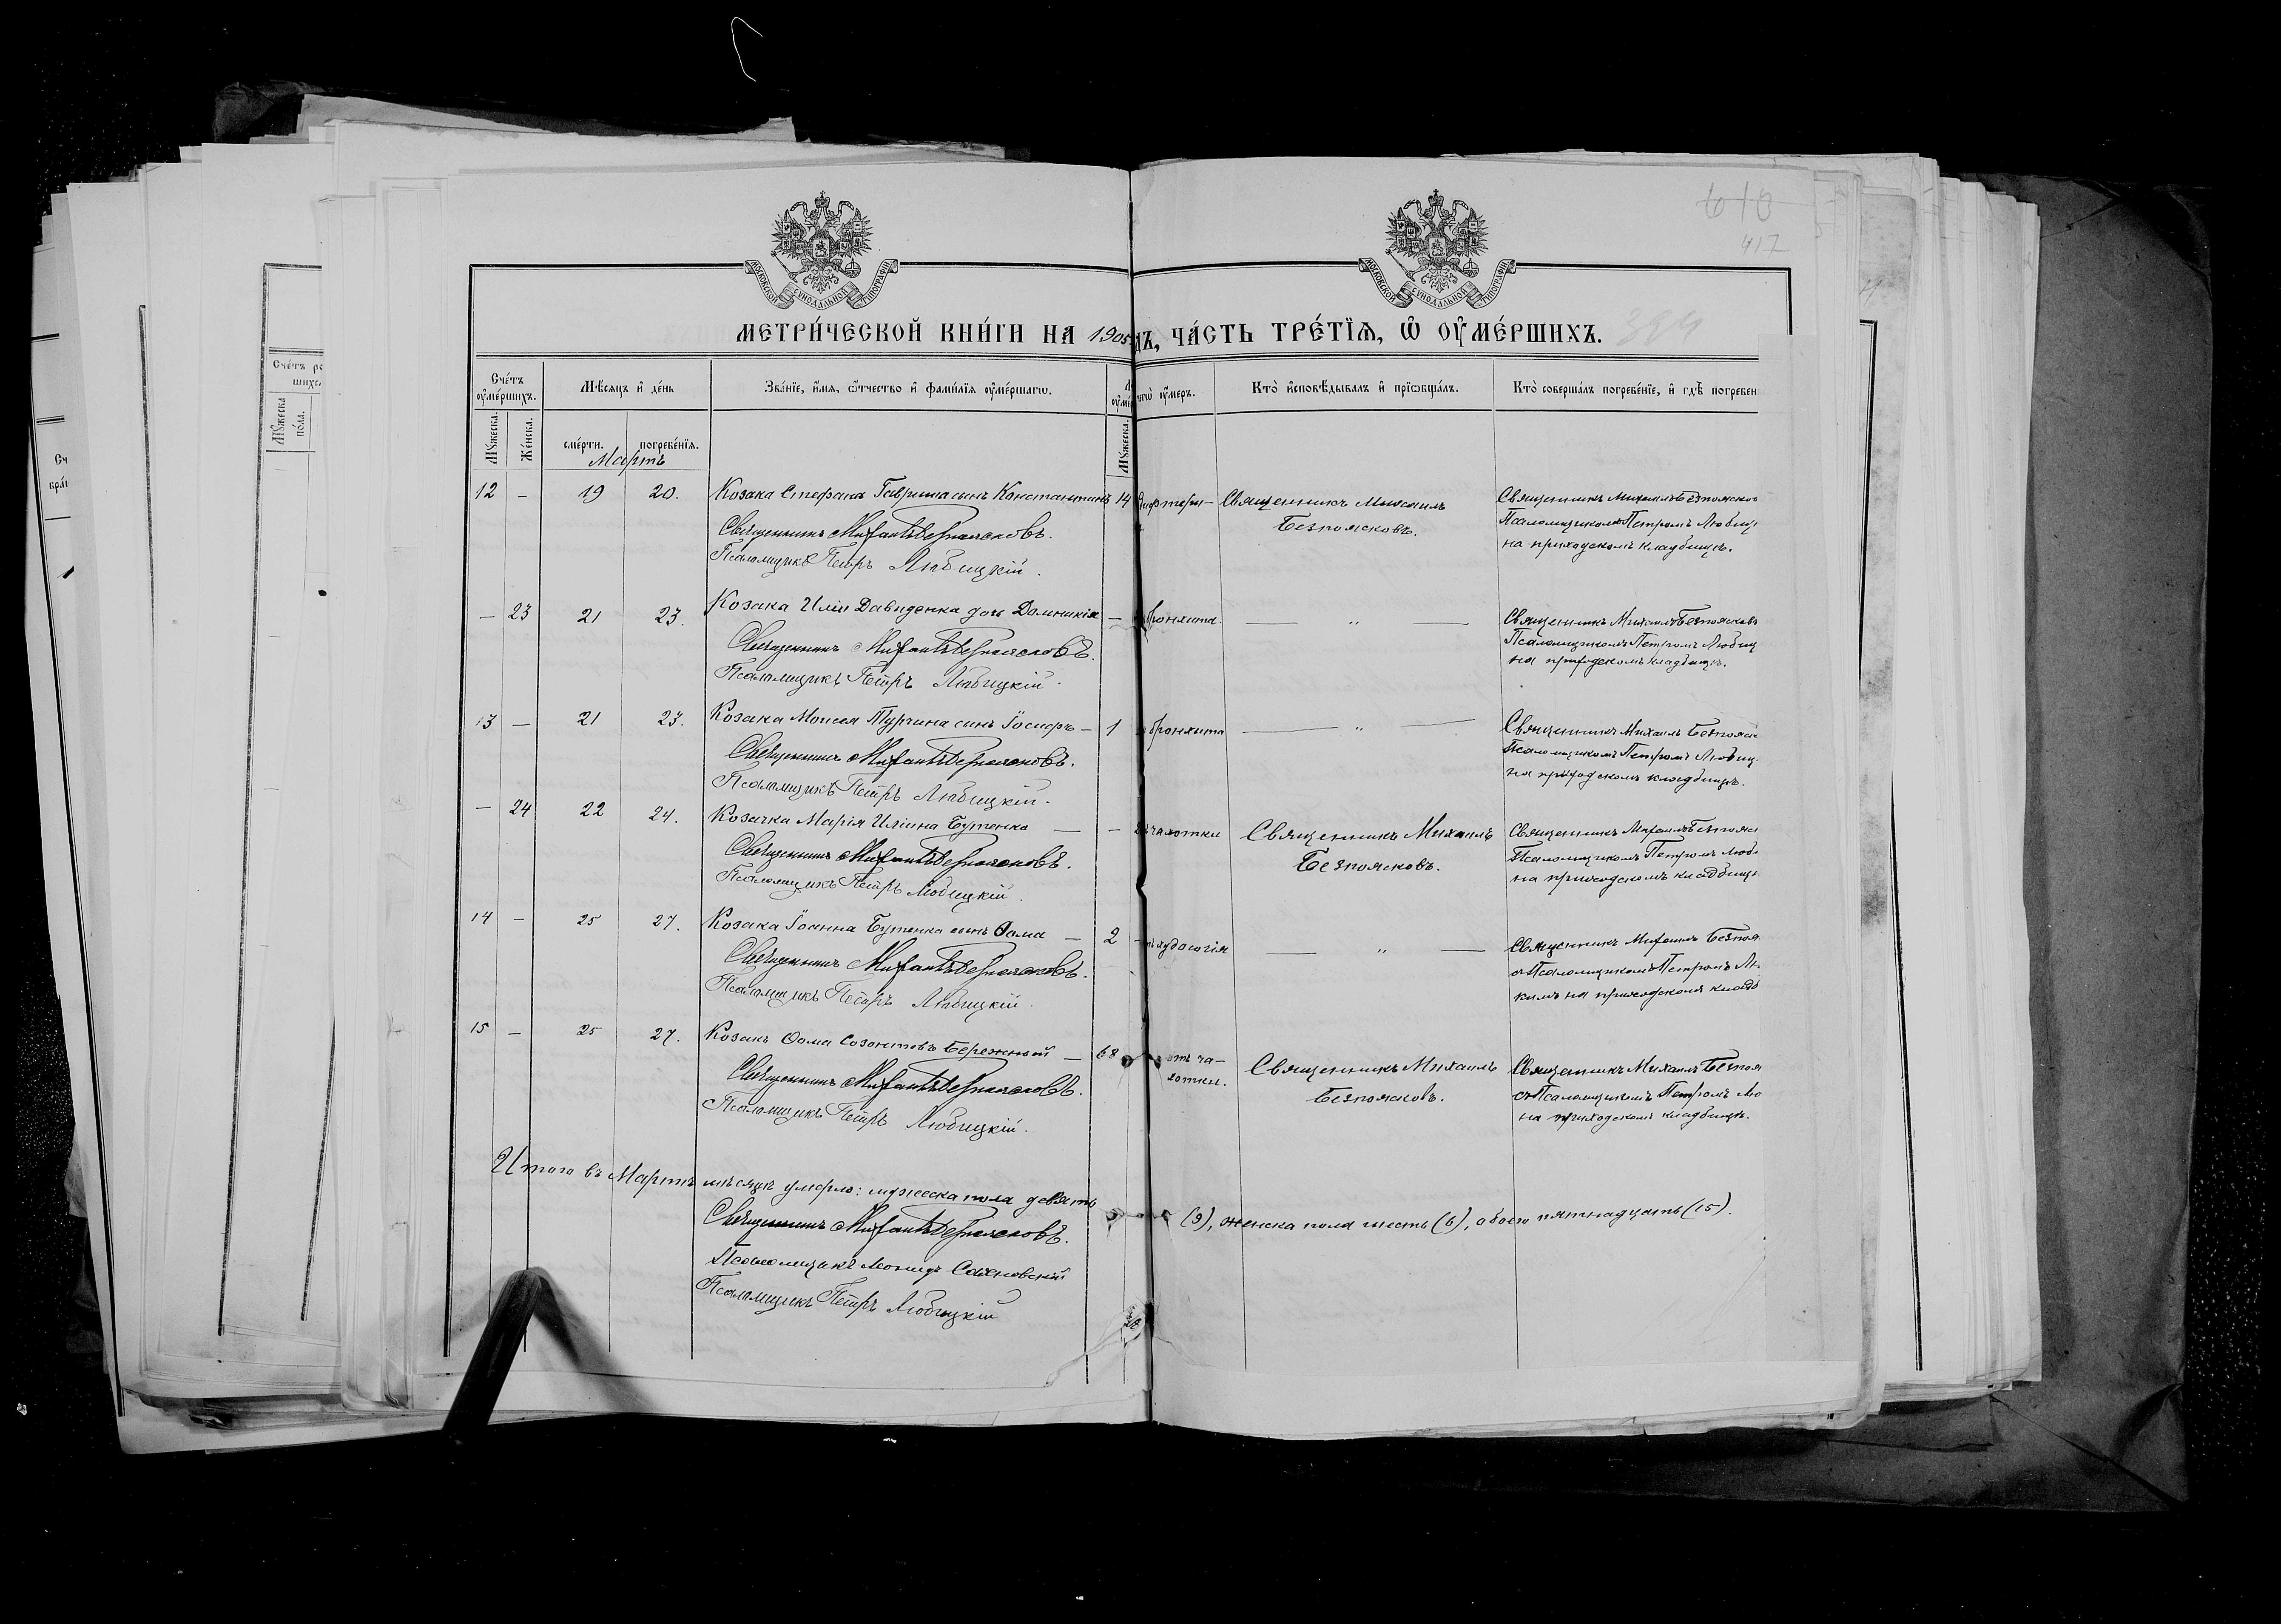 610
417
МОСКОВСКОЙ СѴНОДАЛЬНОЙ ТИПОГРАФІИ
МОСКОВСКОЙ СѴНОДАЛЬНОЙ ТИПОГРАФІИ
МЕТРИ́ЧЕСКОЙ КНИ́ГИ НА 1905
ДЪ, ЧА́СТЬ ТРЕ́ТІѦ, Ѡ҆ ОУ҆МЕ́РШИХЪ.
Сче́тъ оу҆ме́ршихъ.
Мꙋжеска.
Же́нска.
Мѣ́сѧцъ и҆ де́нь
сме́рти.
погребе́нїѧ.
Зва́нїе, и҆́мѧ, ѻ҆́тчество и҆ фами́лїѧ оу҆ме́ршагѡ.
Мꙋжеска.
чегѡ̀ оу҆́меръ.
Кто̀ и҆сповѣ́дывалъ и҆ прїѡбща́лъ.
Кто̀ соверша́лъ погребе́нїе, и҆ гдѣ̀ погребен
Мартъ
12 – 19 20. Козака Стефана Гавриша сынъ Константинъ 14
Священникъ Михаилъ Безпоясковъ.
Псаломщикъ Петръ Любицкій.
Священникъ Михаилъ
Безпоясковъ.
Священникъ Михаилъ Безпоясков
Псаломщикомъ Петромъ Любиц
на приходскомъ кладбищѣ.
– 23 21 23. Козака Иліи Давиденка дочь Домникія –
Священникъ Михаилъ Безпоясковъ.
Псаломщикъ Петръ Любицкій.
бронхита. — „ —
Священникъ Михаилъ Безпоясковъ
Псаломщикомъ Петромъ Любиц
на приходскомъ кладбищѣ.
13 – 21 23. Козака Моисея Турчина сынъ Іосифъ – 1
Священникъ Михаилъ Безпоясковъ.
Псаломщикъ Петръ Любицкій.
бронхита — „ —
Священникъ Михаилъ Безпояск
Псаломщикомъ Петромъ Любиц
на приходскомъ кладбищѣ.
– 24 22 24. Козачка Марія Иліина Бутенко — –
Священникъ Михаилъ Безпоясковъ.
Псаломщикъ Петръ Любицкій.
чахотки Священникъ Михаилъ
Безпоясковъ.
Священникъ Михаилъ Безпояс
Псаломщикомъ Петромъ Люб
на приходскомъ кладбищѣ
14 – 25 27. Козака Іоанна Бутенка сынъ Ѳома – 2
Священникъ Михаилъ Безпоясковъ.
Псаломщикъ Петръ Любицкій.
— „ —
Священникъ Михаилъ Безпоя
съ Псаломщикомъ Петромъ Лю
кимъ на приходскомъ кладб
15 – 25 27. Козакъ Ѳома Созонтовъ Бережный – 68
Священникъ Михаилъ Безпоясковъ.
Псаломщикъ Петръ Любицкій.
отъ ча-
хотки.
Священникъ Михаилъ
Безпоясковъ.
Священникъ Михаилъ Безпоя
съ Псаломщикомъ Петромъ Лю
на приходскомъ кладбищѣ.
Итого въ Мартѣ мѣсяцѣ умерло: мужеска пола девять
(9), женска пола шесть (6), обоего пятнадцать (15).
Священникъ Михаилъ Безпоясковъ.
Псаломщикъ Леонидъ
Псаломщикъ Петръ Любицкій